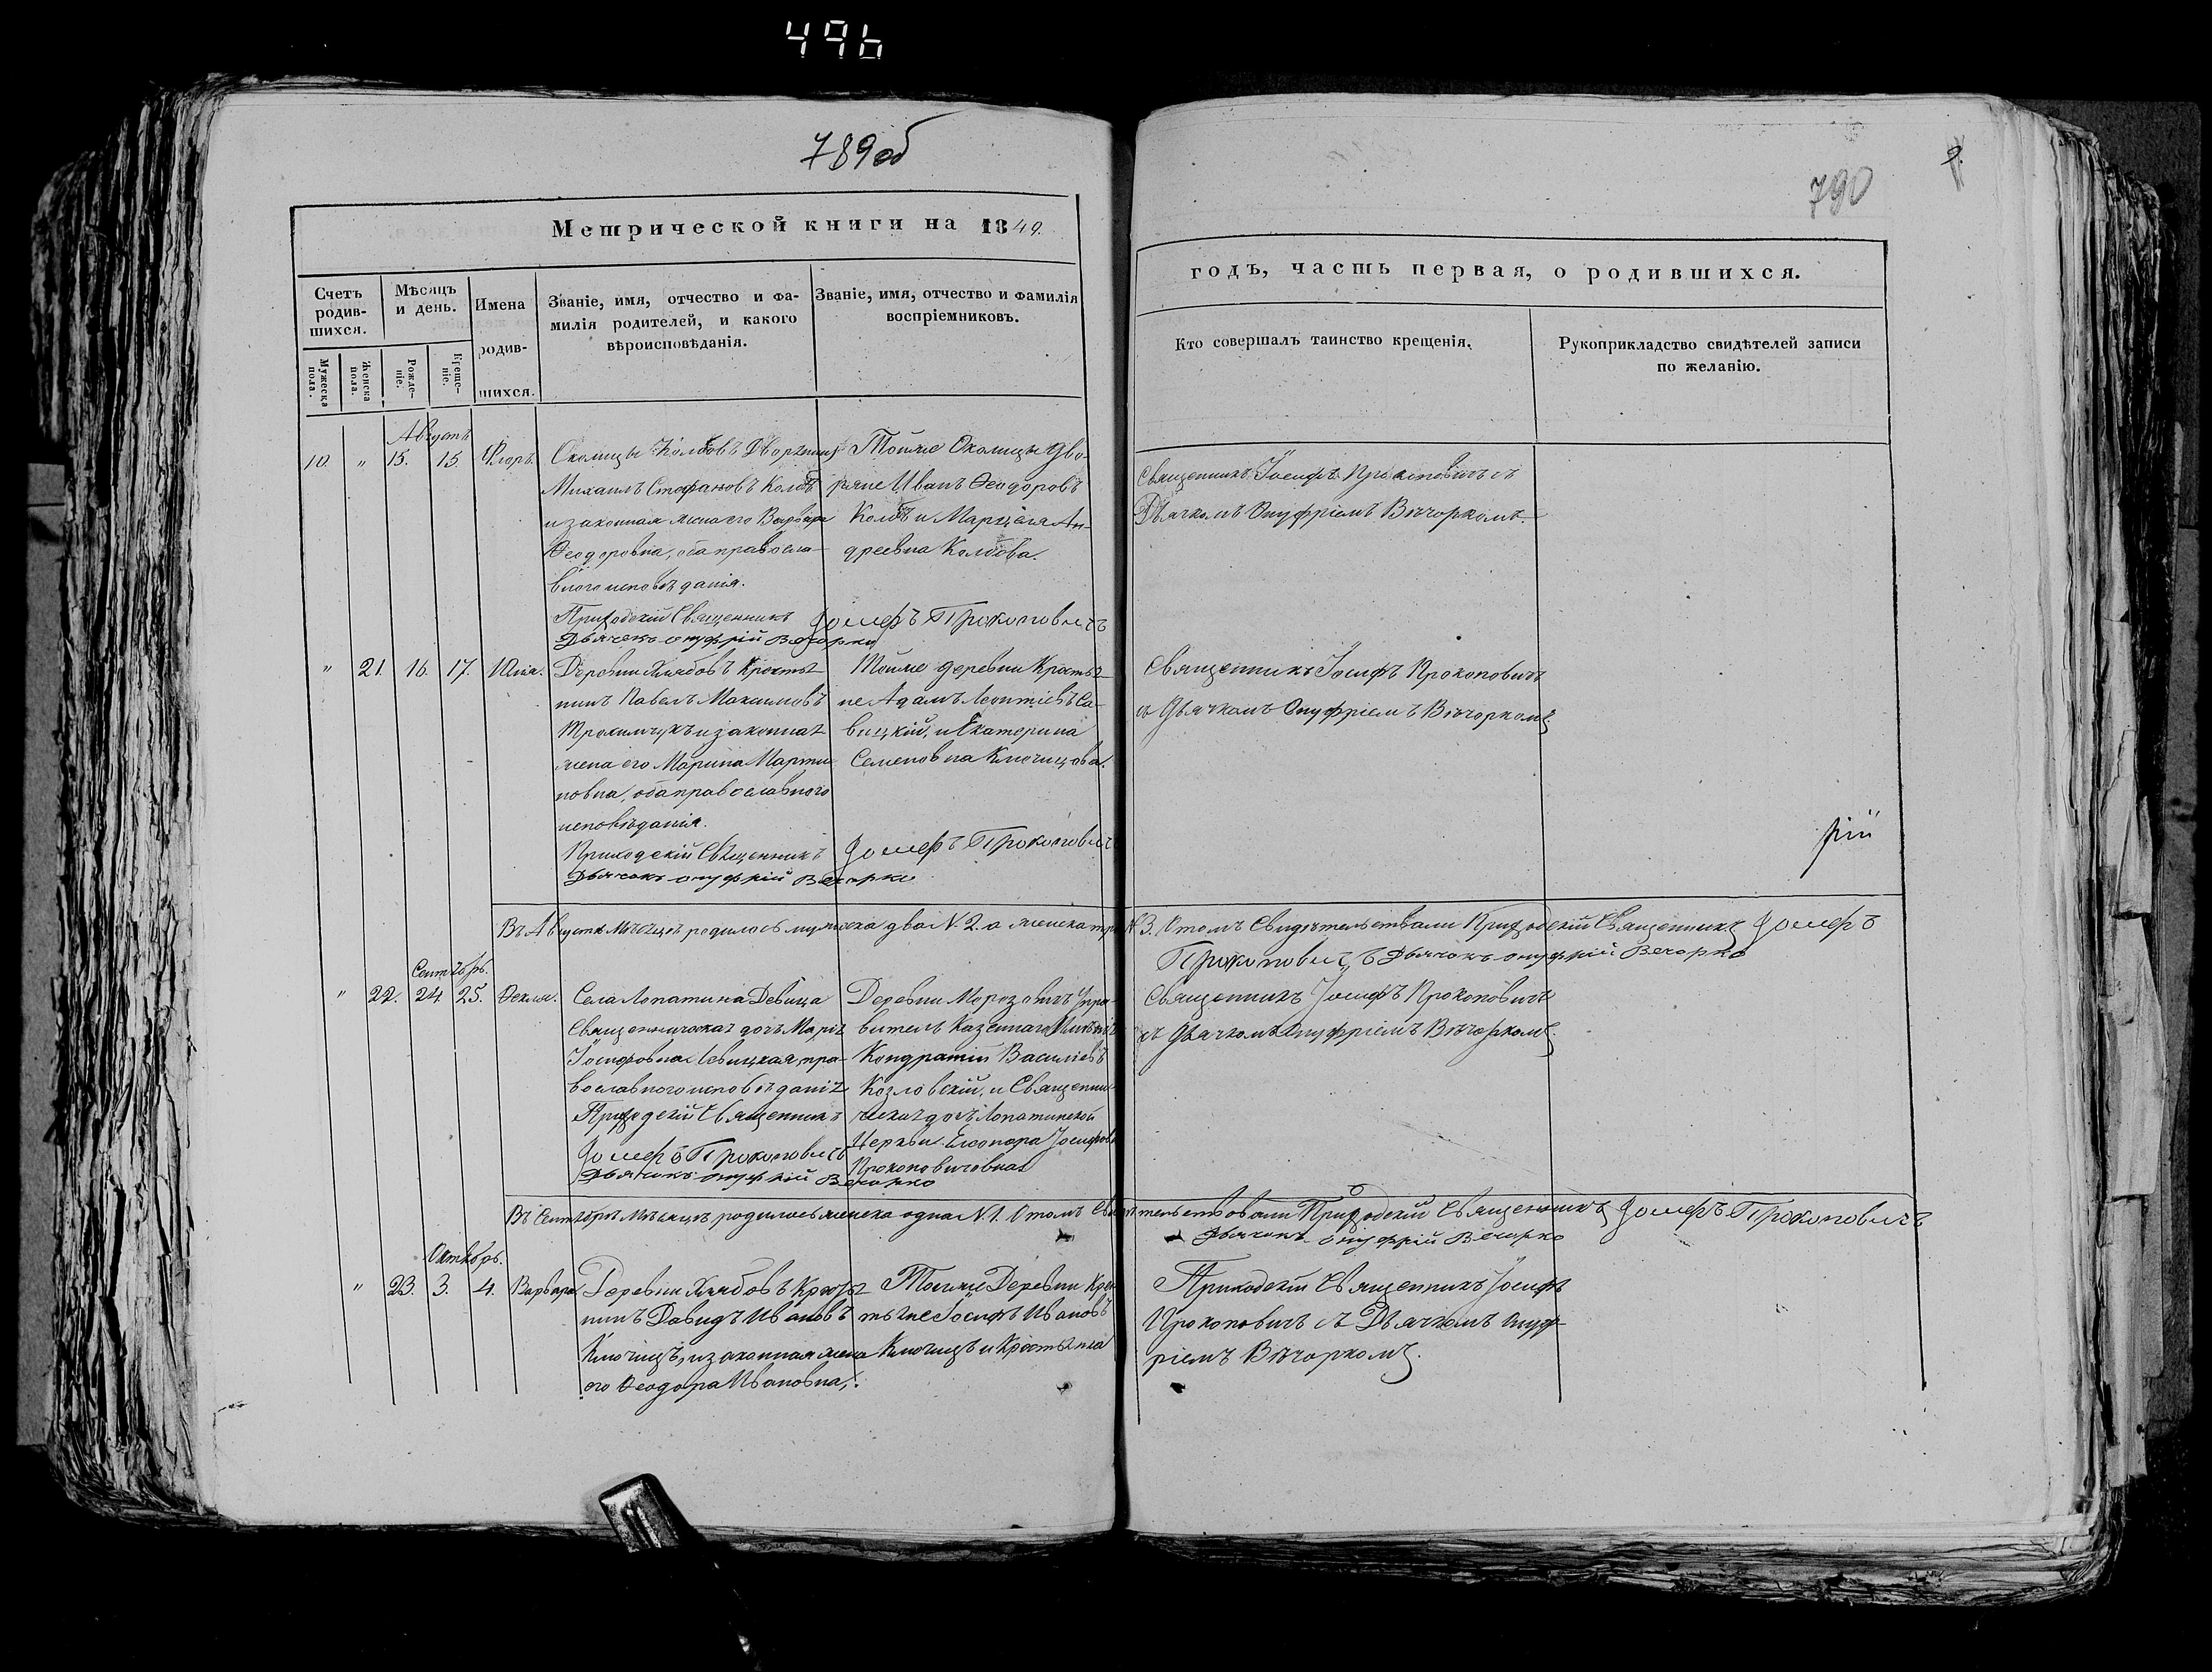 496
789об
790
9.
Метрической книги на 1849.
годъ, часть первая, о родившихся.
Счетъ родив-шихся.
Мужеска пола.
Женска пола.
Мѣсяцъ и день.
Рожде-ніе.
Креще-ніе.
Имена родив-шихся.
Званіе, имя, отчество и фа-
милія родителей, и какого
вѣроисповѣданія.
Званіе, имя, отчество и фамилія
воспріемниковъ.
Кто совершалъ таинство крещенія.
Рукоприкладство свидѣтелей записи
по желанію.
Августъ
10. " 15. 15. Флоръ.
Околицы Колбовъ Дворянинъ
Михаилъ Стефановъ Колбъ
и законная жена его Варвара
Ѳеодоровна, оба правосла-
вного исповѣданія.
Приходскій Священникъ Іосифъ Прокоповичъ
Дьячокъ Онуфрій Вечорко
Тойже Околицы Дво-
ряне Иванъ Ѳеодоровъ
Колбъ и Ан-
дреевна Колбова.
Священникъ Іосифъ Прокоповичъ съ
Дьячкомъ Онуфріемъ Вѣчоркомъ.
" 21. 16. 17. Юлія.
Деревни Хлябовъ Крестья-
нинъ Павелъ Максимовъ
и законная
жена его Марина Марти-
новна, оба православного
исповѣданія.
Приходскій Священникъ Іосифъ Прокоповичъ
Дьячокъ Онуфрій Вечорко
Тойже деревни Крестья-
не Адамъ Леонтіевъ Са-
вицкій, и Екатерина
Семеновна Ключицова.
Священникъ Іосифъ Прокоповичъ
съ Дьячкомъ Онуфріемъ Вѣчоркомъ
рій
Въ Августѣ Мѣсяцѣ родилось мужеска два N. 2. а женска три N 3. О томъ Свидѣтельствали Приходскій Священникъ Іосифъ
Прокоповичъ Дьячокъ Онуфрій Вечорко
Сентябрь.
" 22. 24. 25. Ѳекля.
Села Лопатина Девица
Священническая дочь Марія
Іосифовна Левицкая, пра-
вославного исповѣданія
Приходскій Священникъ
Іосифъ Прокоповичъ
Дьячокъ Онуфрій Вечорко
Деревни Морозовичъ Упра-
витель Казеннаго Имѣнія
Кондратій Василіевъ
Козловскій, и Священни-
ческая дочь Лопатинской
Церкви Елеонора Іосифовна
Прокоповичовная
Священникъ Іосифъ Прокоповичъ
съ Дьячкомъ Онуфріемъ Вѣчоркомъ.
Въ Сентябрѣ Мѣсяцѣ родилось женска одна N 1. О томъ Свидѣтельствовали Приходскій Священникъ Іосифъ Прокоповичъ
Дьячокъ Онуфрій Вечорко
Октябрь.
" 23. 3. 4. Варвара
Деревни Хлябовъ Крестья-
нинъ Давидъ Ивановъ
Ключицъ, и законная жена
его Ѳеодора Ивановна,
Тойже Деревни Крес-
тьяне Іосифъ Ивановъ
Ключицъ и Крестьянка
Приходскій Священникъ Іосифъ
Прокоповичъ съ Дьячкомъ Онуф-
ріемъ Вѣчоркомъ.